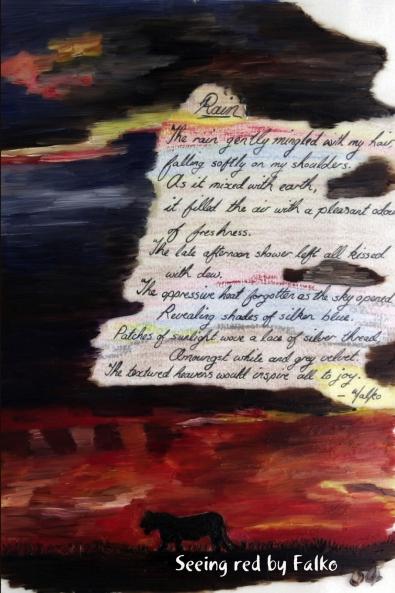 Rain
The rain gently mingled with my hair,
falling softly on my shoulders.
As it mixed with earth,
it filled the air with a pleasant odour
of freshness.
The late afternoon shower left all kissed
with dew.
The oppressive heat forgotten as the sky opened
Revealing shades of silken blue.
Patches of sunlight wove a lace of silver thread,
Amoungst white and grey velvet.
The textured heavens would inspire all to joy.
- Falko
Seeing red by Falko